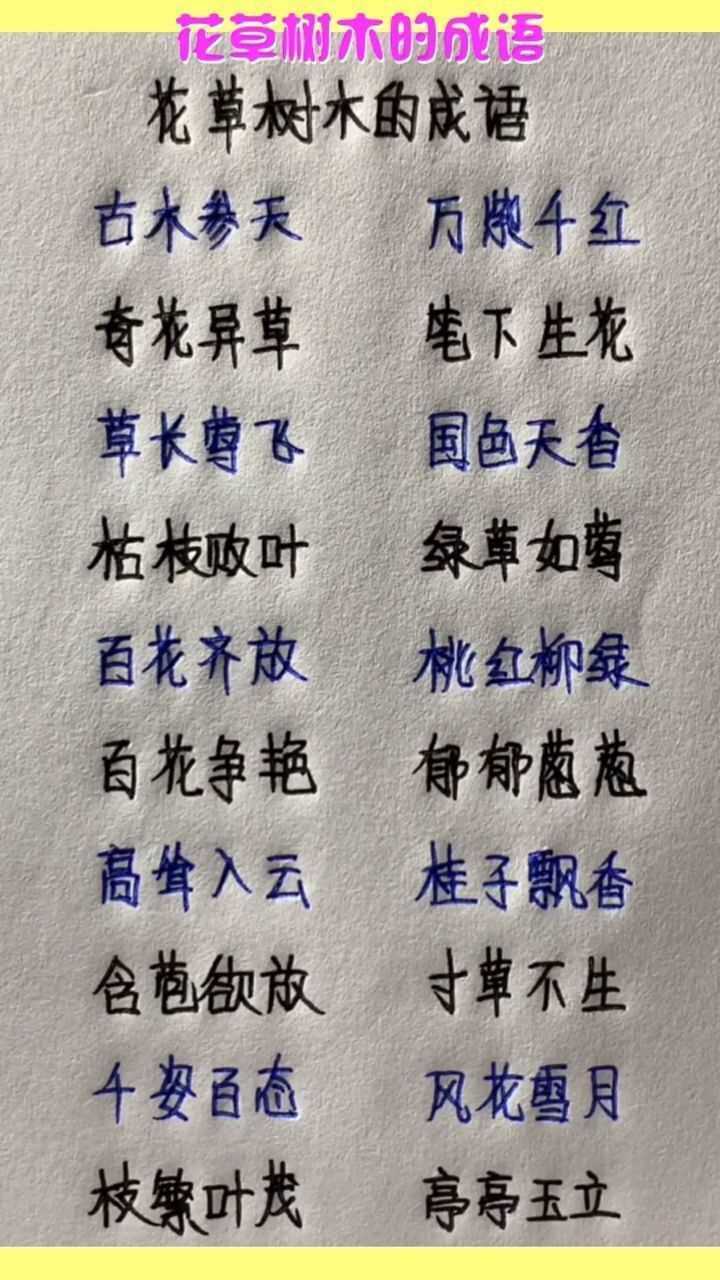 花草树木的成语
花草树木的成语
古木参天 万紫千红
奇花异草 笔下生花
草长莺飞 国色天香
枯枝败叶 绿草如莺
百花齐放 桃红柳绿
百花争艳 郁郁葱葱
高耸入云 桂子飘香
含苞欲放 寸草不生
千姿百态 风花雪月
枝繁叶茂 亭亭玉立